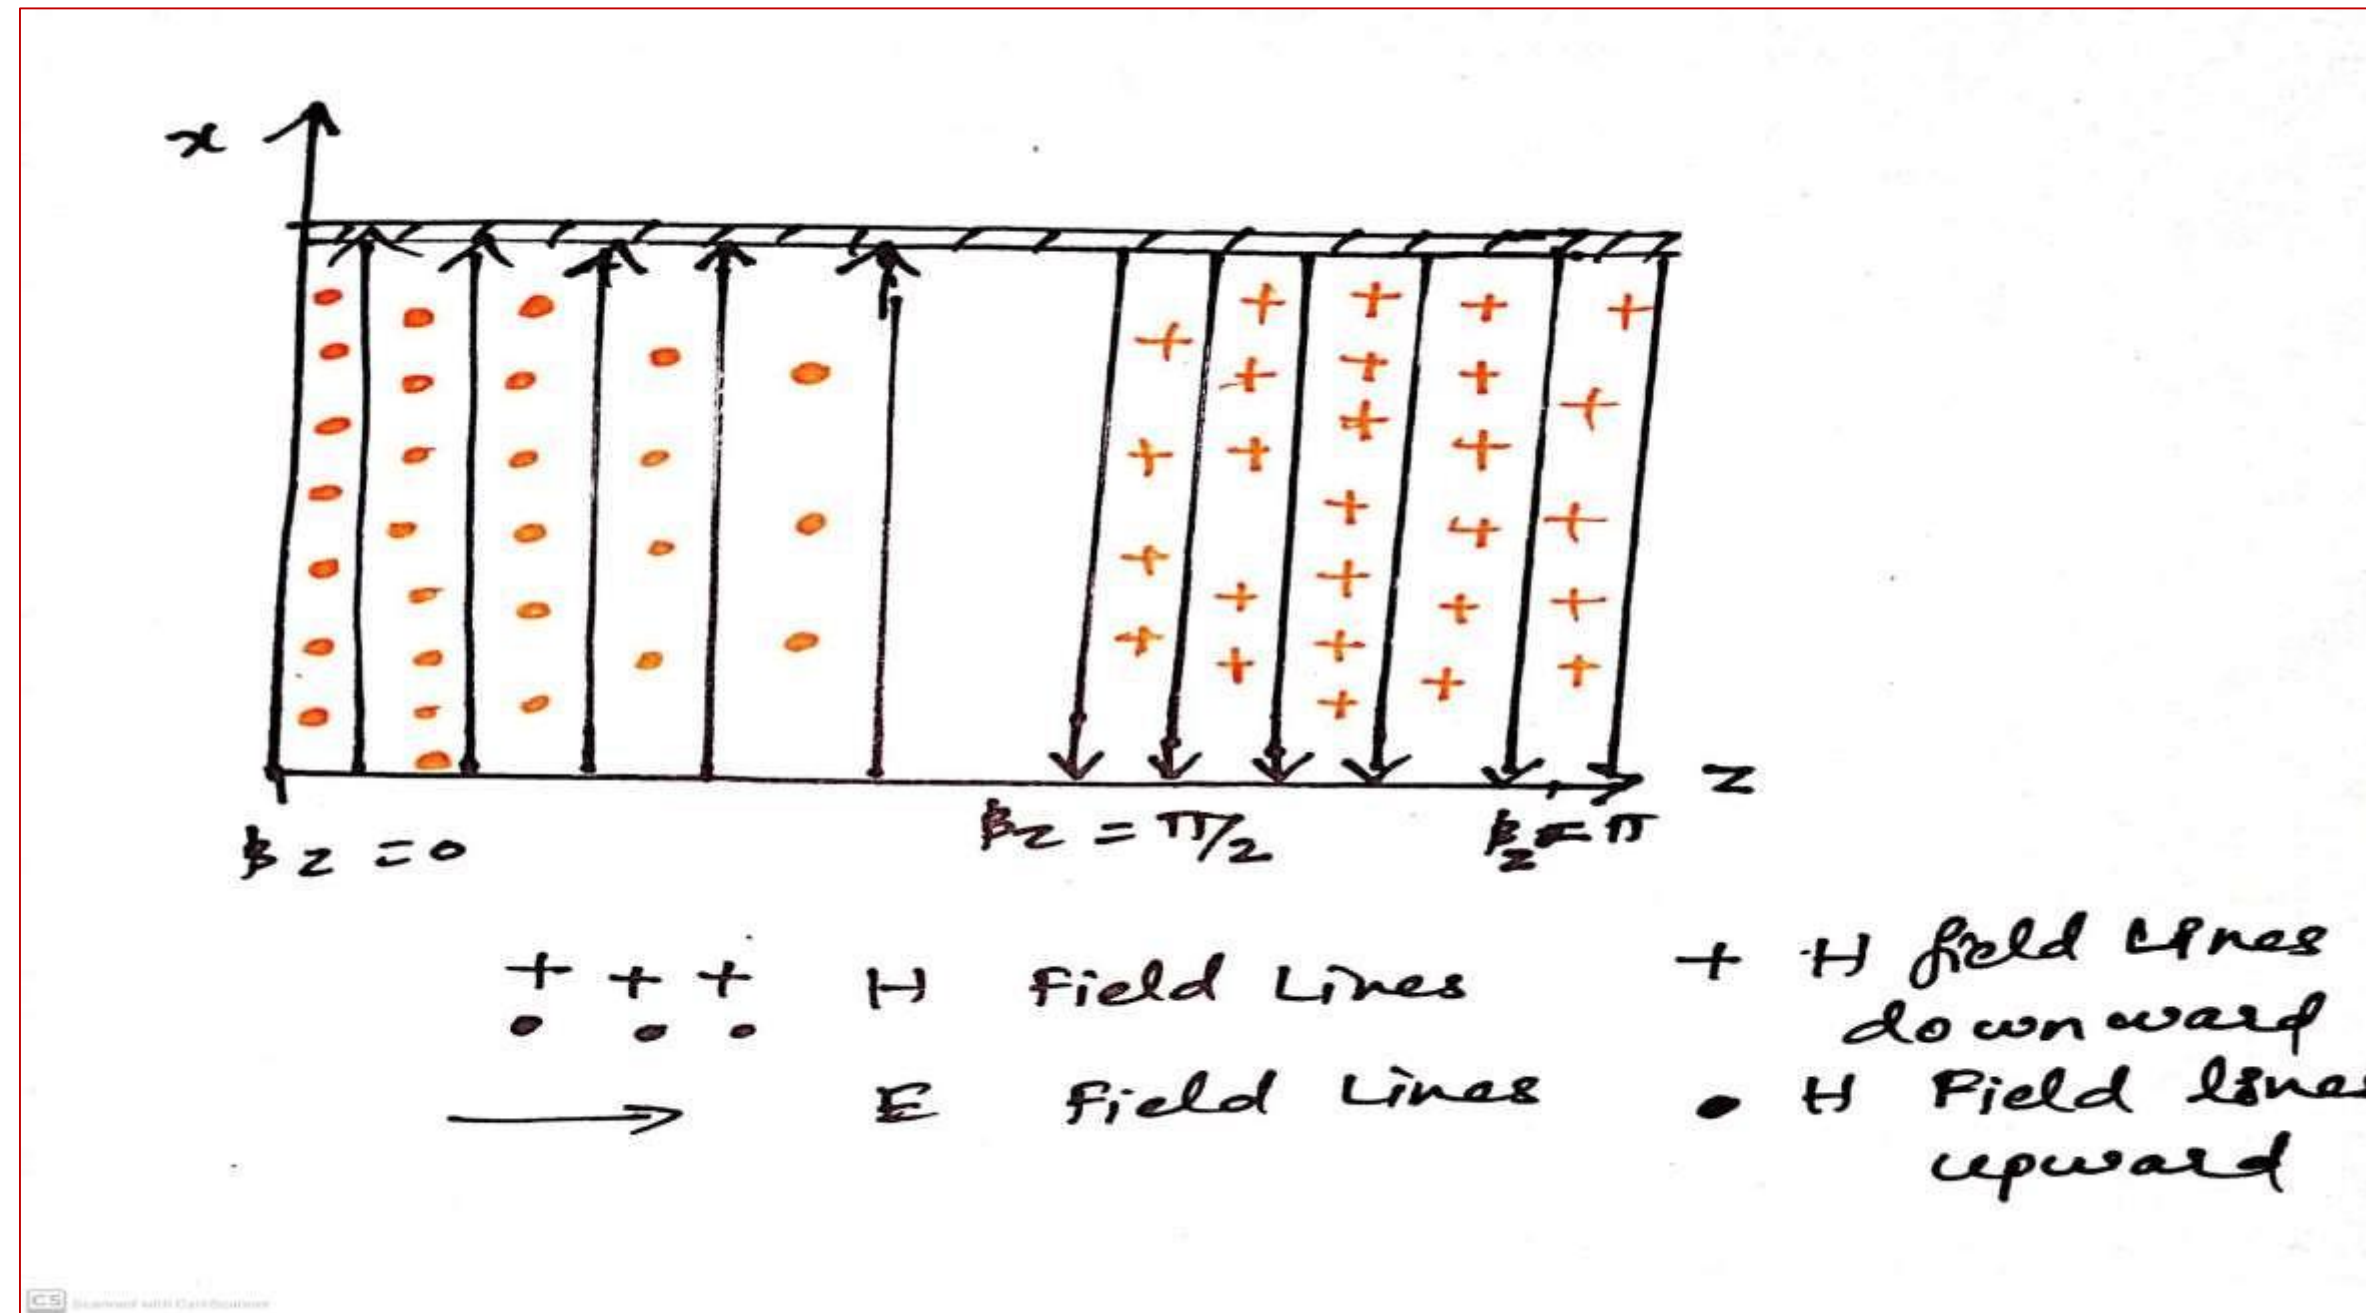 x
z
βz = 0
βz = π/2
βz = π
+ + + H Field Lines
• • •
→ E Field Lines
+ H field Lines
downward
• H Field lines
upward
CS Scanned with CamScanner